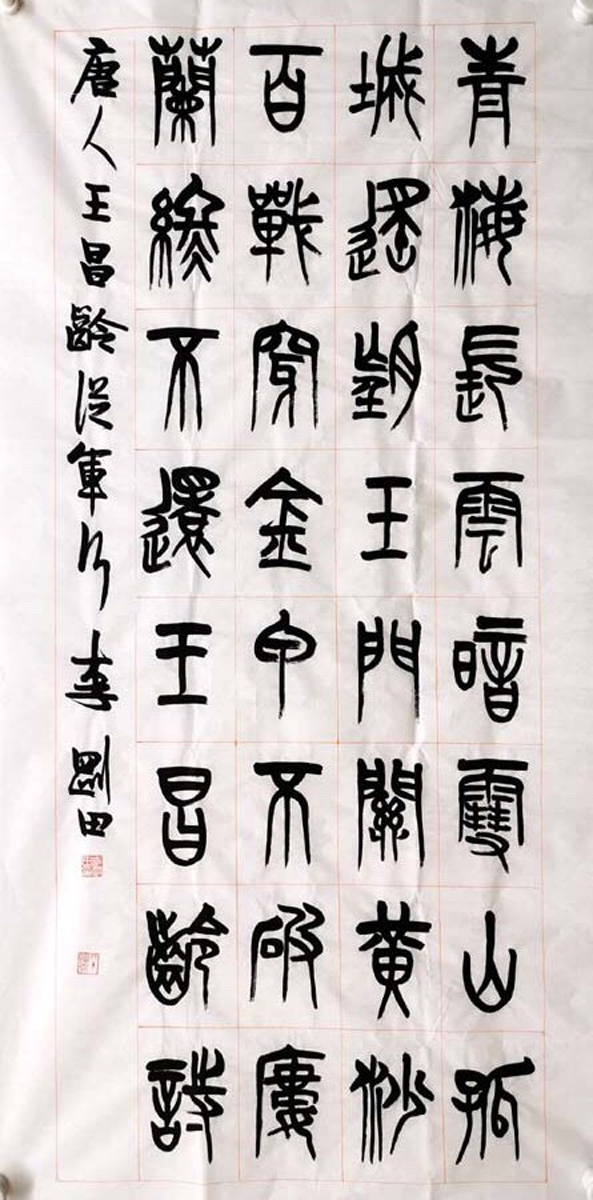 青海長雲暗雪山孤
城遥望玉門關黃沙
百戰穿金甲不破樓
蘭終不還王昌齡詩
唐人王昌齡從軍行 李剛田